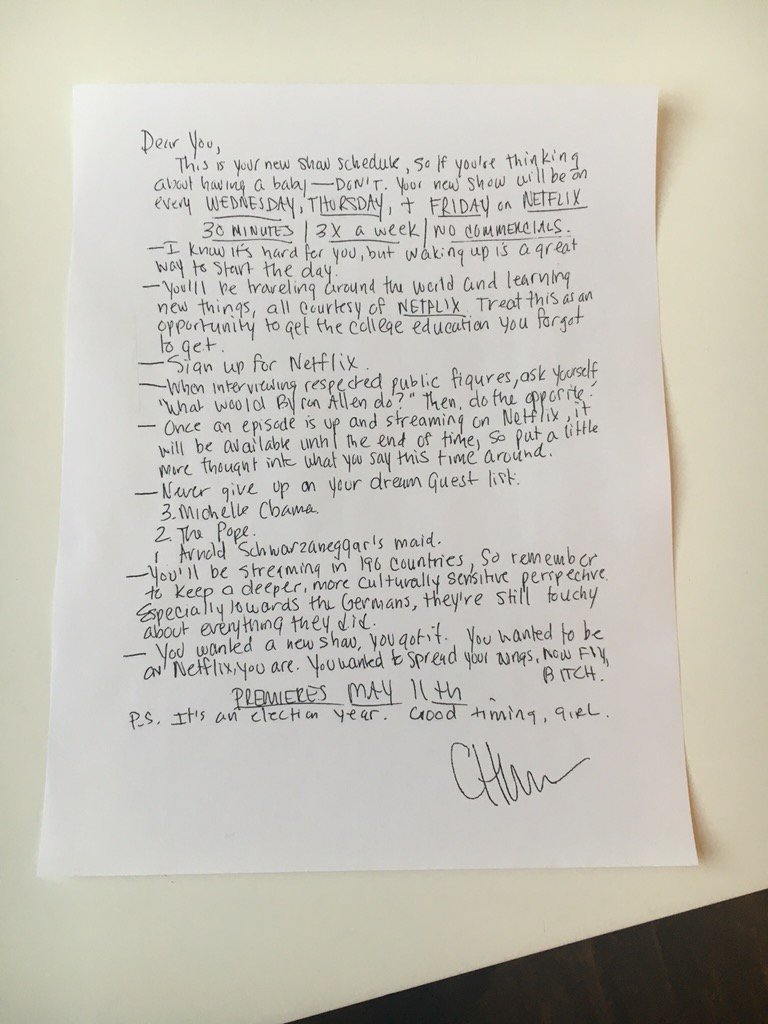 Dear You,
This is your new show schedule, so if you're thinking
about having a baby — DON'T. Your new show will be on
every WEDNESDAY, THURSDAY, + FRIDAY on NETFLIX
30 MINUTES | 3X a week | NO COMMERCIALS.
— I know it's hard for you, but waking up is a great
way to start the day.
— You'll be traveling around the world and learning
new things, all courtesy of NETFLIX. Treat this as an
opportunity to get the college education you forgot
to get.
— Sign up for Netflix.
— When interviewing respected public figures, ask yourself
"What would Byron Allen do?" Then, do the opposite!
— Once an episode is up and streaming on Netflix, it
will be available until the end of time, so put a little
more thought into what you say this time around.
— Never give up on your dream Guest list.
3. Michelle Obama.
2. The Pope.
1 Arnold Schwarzaneggar's maid.
— You'll be streaming in 190 countries, so remember
to keep a deeper, more culturally sensitive perspective.
Especially towards the Germans, they're still touchy
about everything they did.
— You wanted a new show, you got it. You wanted to be
on Netflix, you are. You wanted to spread your wings, NOW FLY,
BITCH.
PREMIERES MAY 11th.
P.S. It's an election year. Good timing, girl.